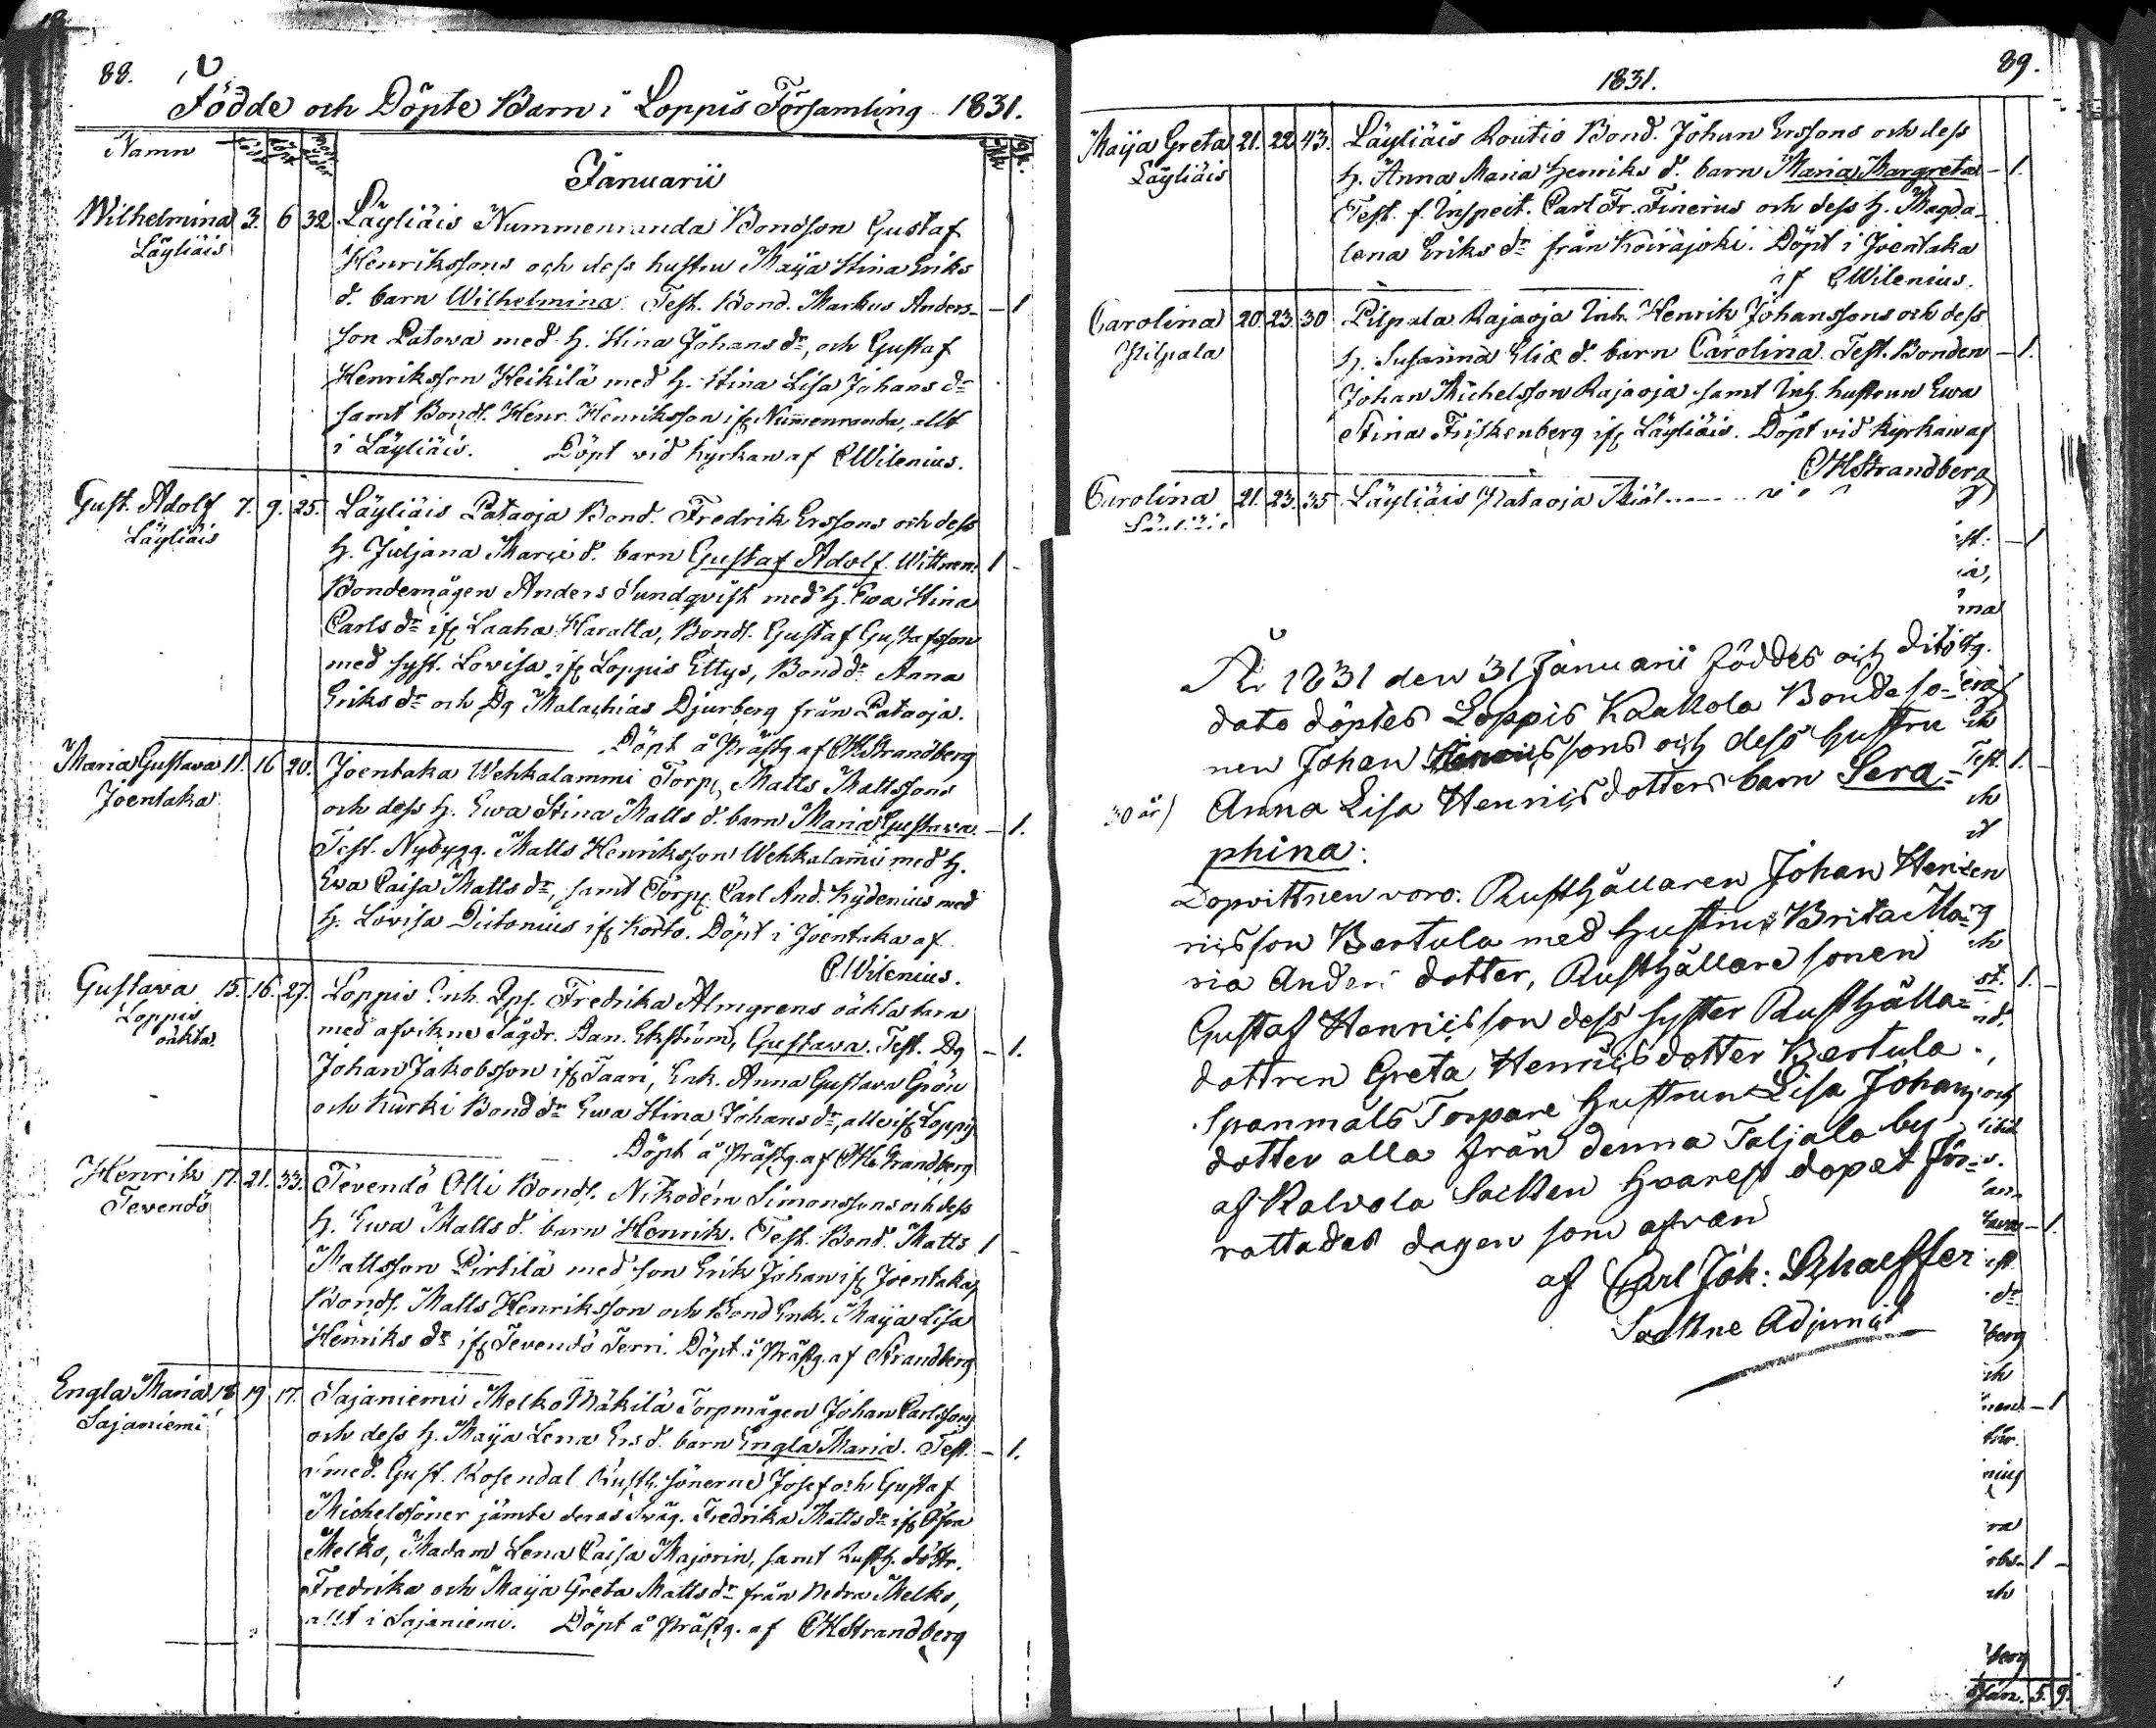 88.
Födde och Döpte Barn i Loppis Församling 1831.
Namn
Januarii
Wilhelmina 3. 6 32. Läyliäis Nummenranda Bondson Gustaf
Läyliäis
Henrikssons och dess hustru Maija Stina Eriks
d. barn Wilhelmina. Test. Bond. Markus Anders- – 1
son Patova med h. Stina Johans dr, och Gustaf
Henriksson Heikilä med h. Stina Lisa Johans dr
samt Bonds. Henr. Henriksson ifr Nummenranda, allt
i Läyliäis. Döpt vid kyrkan af CWilenius.
Gust. Adolf 7. 9. 25. Läyliäis Pataoja Bond. Fredrik Erssons och dess
Läyliäis
h. Juljana Marci d. barn Gustaf Adolf. Wittnen: 1 -
Bondemågen Anders Sundqvist med h. Ewa Stina
Carls dr ifr Laaha Haralla, Bonds. Gustaf Gustafsson
med syst. Lovisa ifr Loppis Ettys, Bond dr Anna
Eriks dr och Dg Malachias Djurberg från Pataoja.
Döpt å Prästg. af CHStrandberg
Maria Gustava 11. 16 20. Joentaka Wehkalammi Torp. Matts Mattssons
Joentaka
och dess h. Ewa Stina Matts d. barn Maria Gustava. – 1.
Test. Nybygg. Matts Henriksson Wehkalammi med h.
Eva Caisa Matts dr, samt Torp. Carl And. Kydenius med
h. Lovisa Ditonius ifr Korto. Döpt i Joentaka af
C.Wilenius.
Gustava 15. 16. 27. Loppis Inh. Qps. Fredrika Almgrens oäkta barn
Loppis
oäkta
med afvikne Sågdr. Dan. Ekström, Gustava. Test. Dg – 1.
Johan Jakobsson ifr Saari, Enk. Anna Gustava Grön
och Kurki Bond dr Ewa Stina Johans dr, alle ifr Loppis
Döpt å Prästg. af CHStrandberg
Henrik 17. 21. 33. Tevendö Olli Bonds. Nikodem Simonssons och dess
Tevendö
h. Ewa Matts d. barn Henrik. Test. Bond. Matts 1 -
Mattsson Pirtilä med son Erik Johan ifr Joentaka,
Bonds. Matts Henriksson och Bond Enk. Maija Lisa
Henriks dr ifr Tevendö Terri. Döpt å Prästg. af Strandberg
Engla Maria 18. 19 17. Sajaniemi Melko Mäkilä Torpmågen Johan Carlssons
Sajaniemi
och dess h. Maija Lena Ers d. barn Engla Maria. Test. – 1.
Gust. Rosendal Rusth. sönerne Josef och Gustaf
Michelssöner jämte deras Swäg. Fredrika Matts dr ifr Öfra
Melko, Madam Lena Caisa Majorin, samt Rusth. döttr.
Fredrika och Maija Greta Matts dr från Nedra Melko,
allt i Sajaniemi. Döpt å Prästg. af CHStrandberg
1831.
89.
Maija Greta 21. 22 43. Läyliäis Routio Bond. Johan Erssons och dess
Läyliäis
h. Anna Maria Henriks d. barn Maria Margreta – 1.
Test. f. Inspect. Carl Fr. Finerus och dess h. Magda-
lena Eriks dr från Koirajoki. Döpt i Joentaka
af CWilenius.
Carolina 20. 23. 30 Pilpala Rajaoja Inh. Henrik Johanssons och dess
Pilpala
h. Susanna Eliæ d. barn Carolina. Test. Bonden – 1.
Johan Michelsson Rajaoja samt Inh. hustrun Ewa
Stina Friskenberg ifr Läyliäis. Döpt vid kyrkan af
CHStrandberg
Carolina 21. 23. 35 Läyliäis Pataoja
År 1831 den 31 Januarii föddes och dito
dato döptes Loppis Kaukola Bondeso-
nen Johan Henricssons och dess hustru
30 år) Anna Lisa Henricsdotters barn Sera-
phina:
Dopvittnen voro: Rusthållaren Johan Hen-
ricsson Bertula med hustrun Brita Ma-
ria Anders dotter, Rusthållare sonen
Gustaf Henricsson dess syster Rusthålla-
dottren Greta Henricsdotter Bertula
Spanmåls Torpare hustrun Lisa Johans
dotter alla från denna Taljala by
af Kalvola Socken hvarest dopet för-
rattades dagen som ofvan
af Carl Joh: Schaeffer
Sockne Adjunct